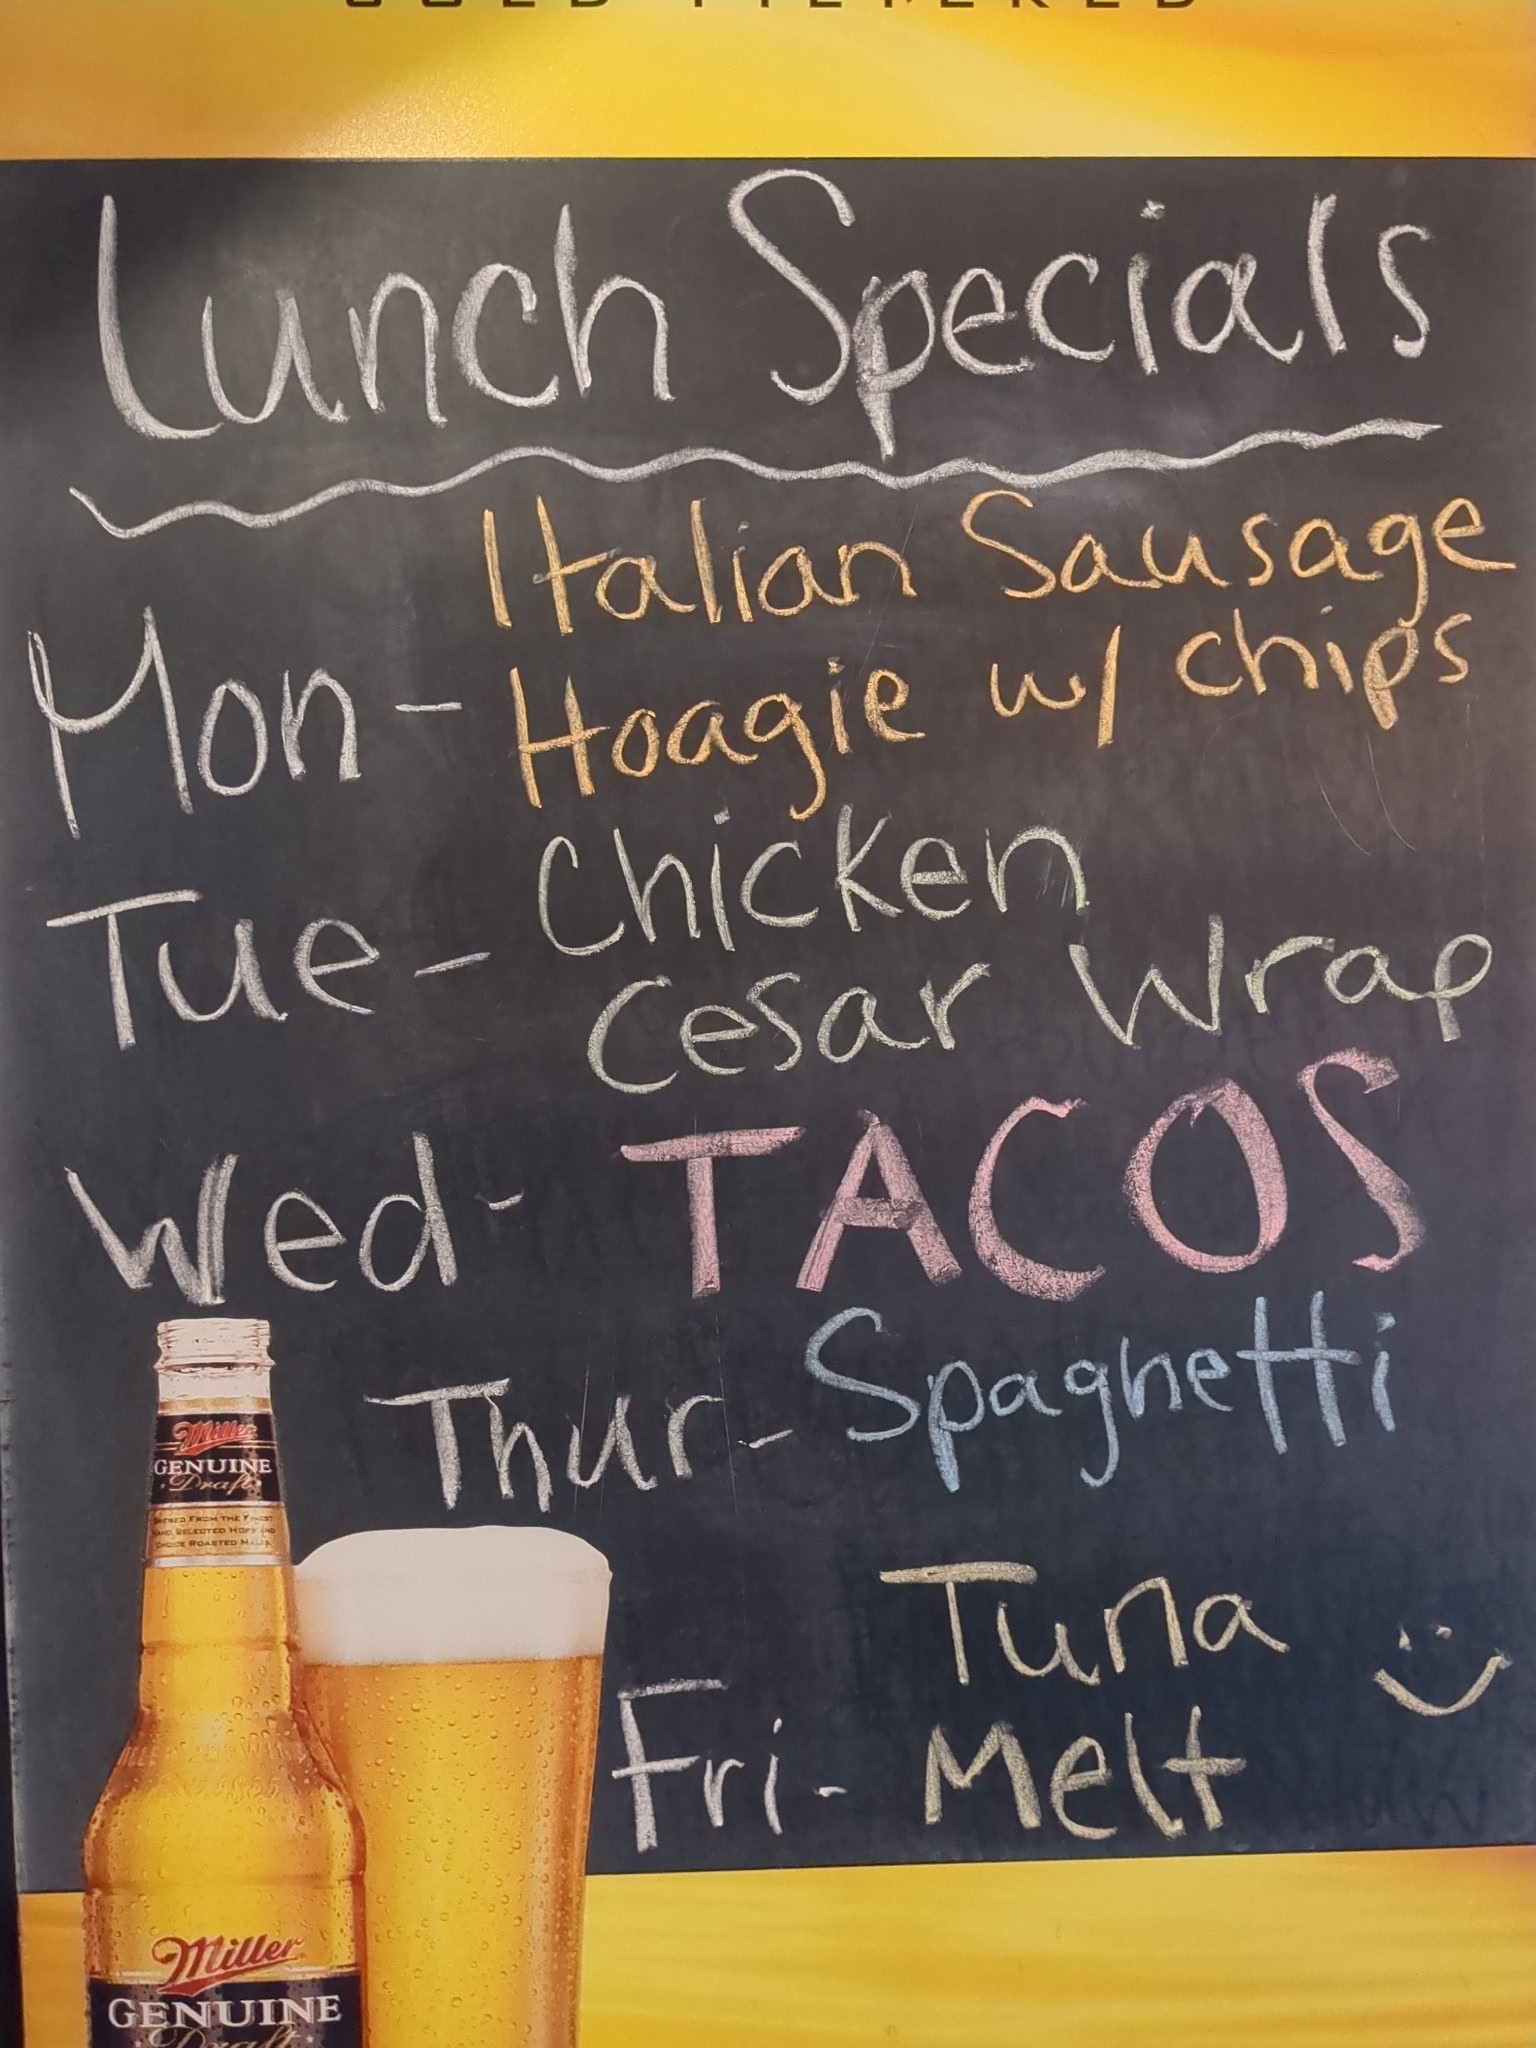 COLD FILTERED
Lunch Specials
Italian Sausage
Mon - Hoagie w/ chips
Chicken
Tue - Cesar Wrap
Wed - TACOS
Thur - Spaghetti
Tuna
Fri - Melt
Miller
GENUINE
Draft
BREWED FROM THE FINEST
HAND SELECTED HOPS AND
CHOICE ROASTED MALTS
Miller
GENUINE
Draft